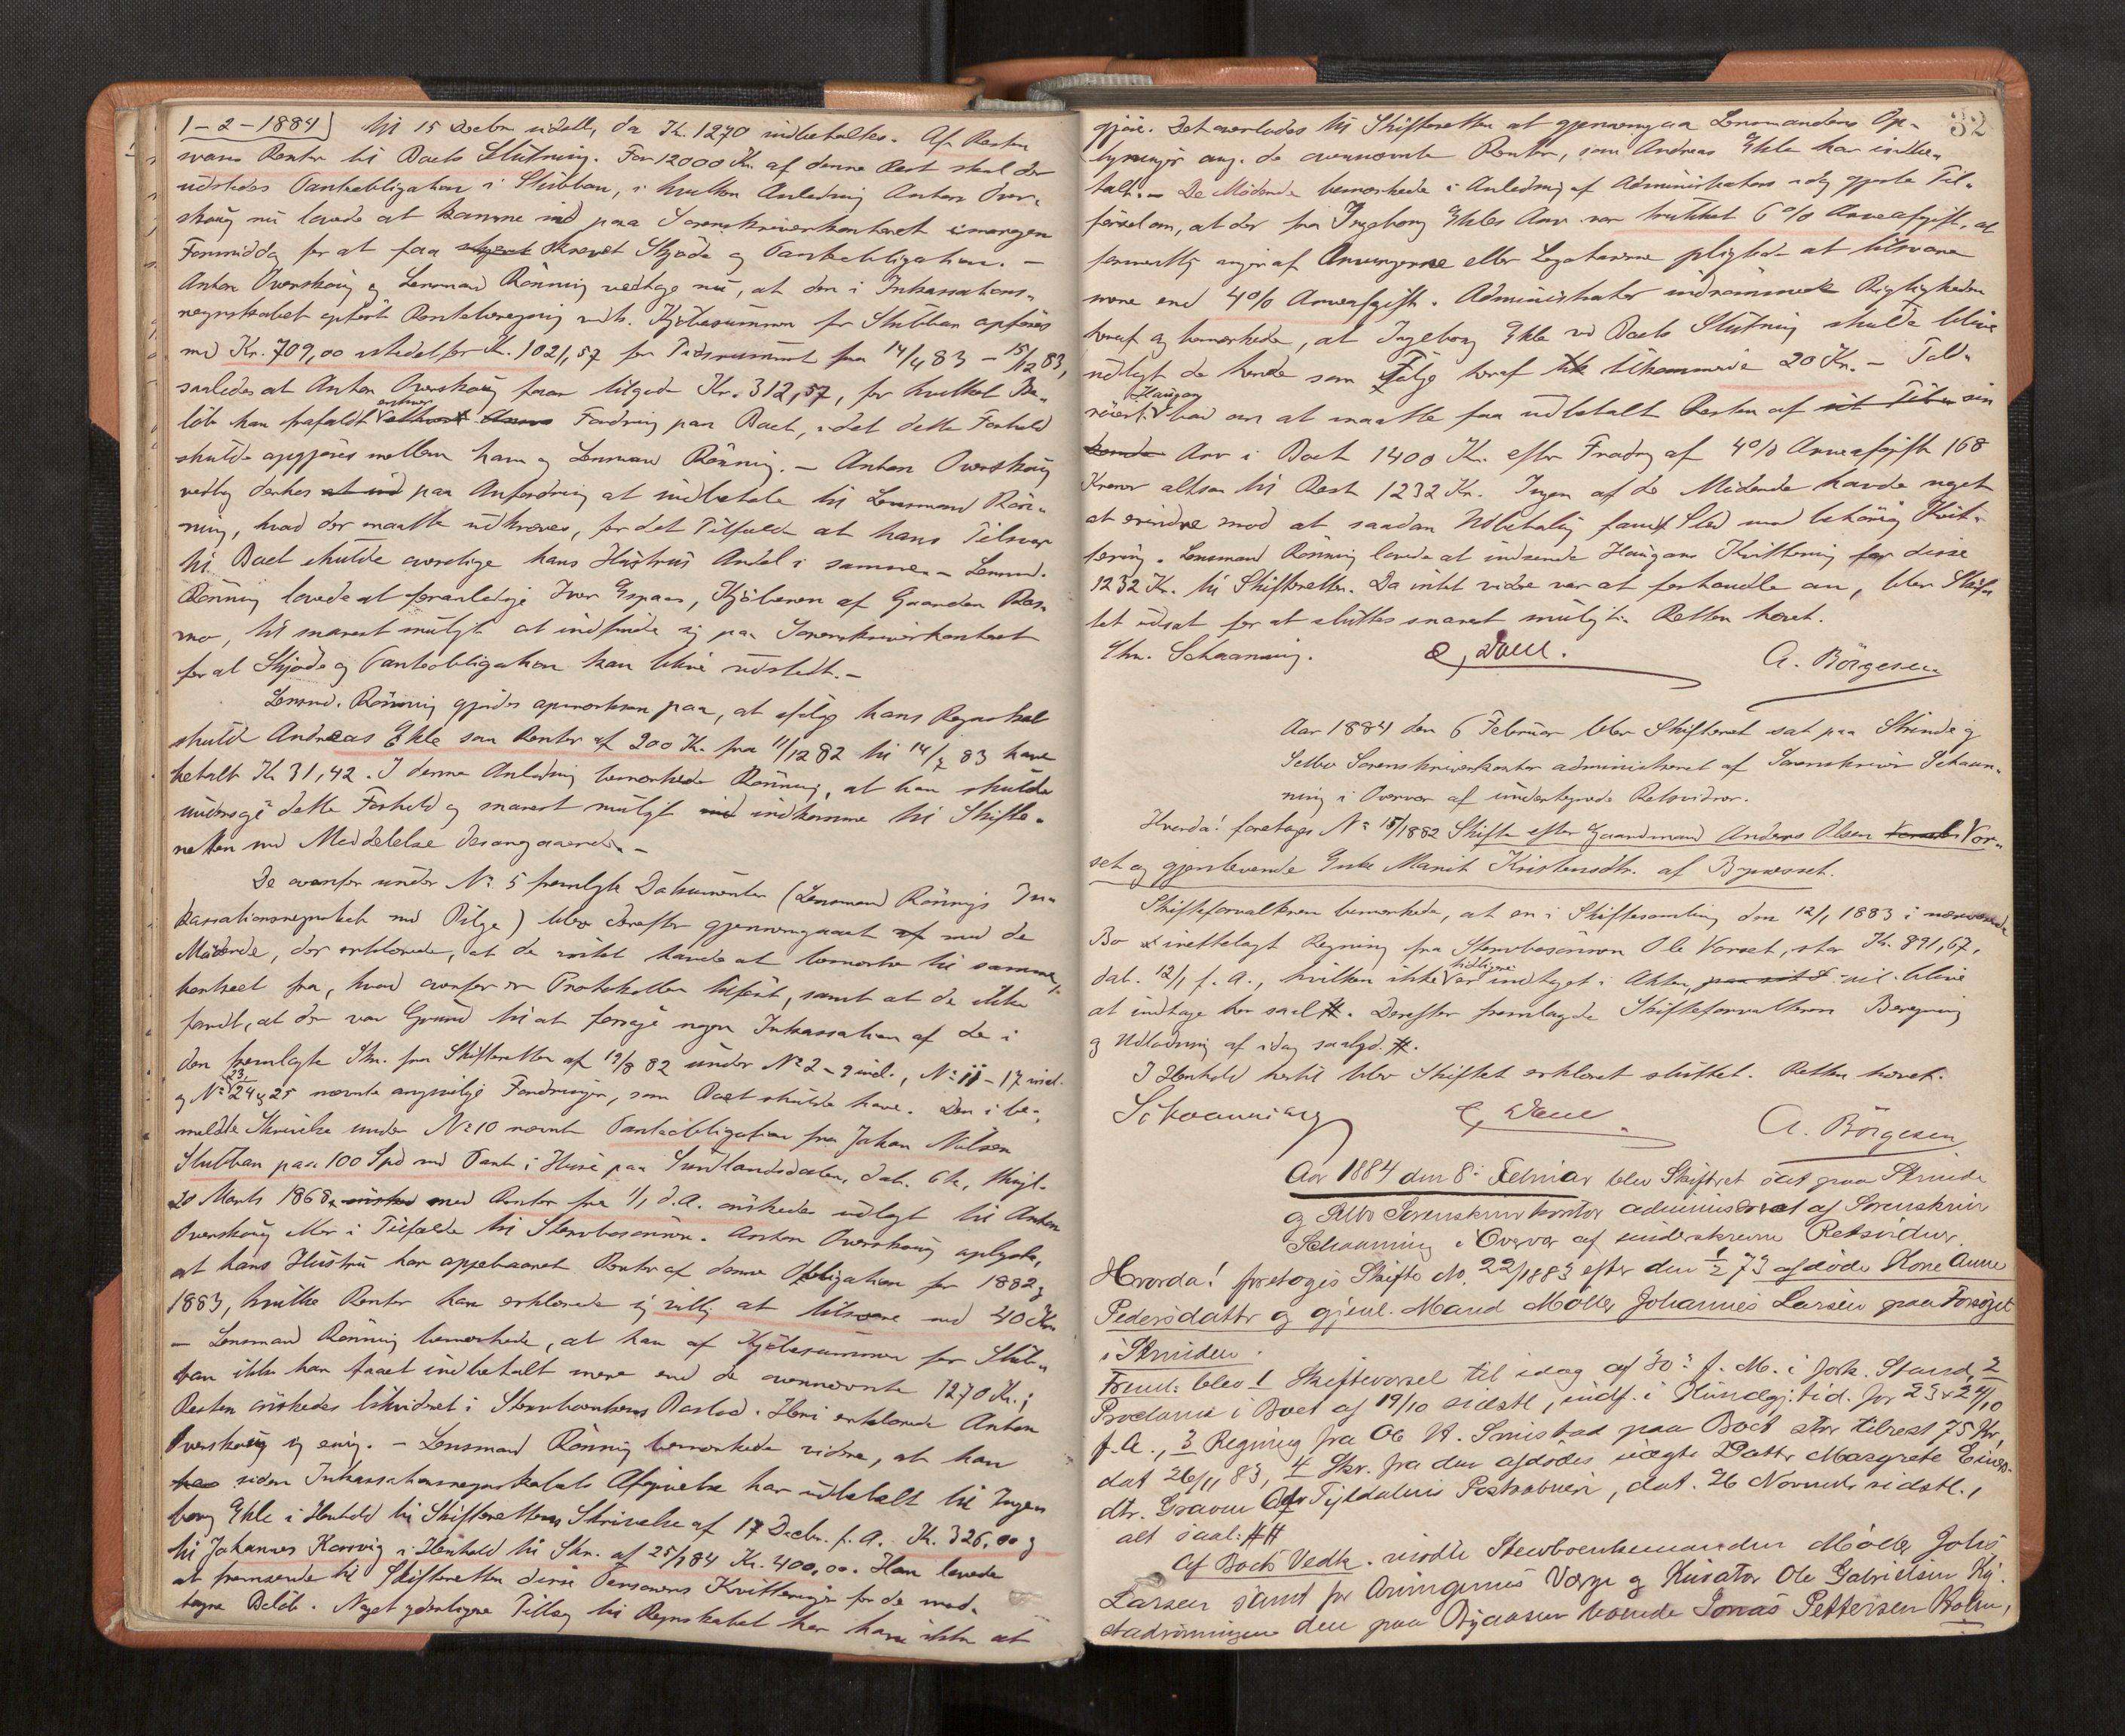 1-2-1884] til 15 Decbr. sidstl., da Kr. 1270 indbetaltes. Af Resten
svares Renter til Boets Slutning. For 12000 Kr. af denne Rest skal der
udstedes Panteobligation i Stubban, i hvilken Anledning Anton Over-
skoug nu lovede at komme ind paa Sorenskriverkontoret imorgen
Formiddag for at faa skrevet Skjøde og Panteobligation. -
Anton Overskoug og Lensmand Rönning vedtoge nu, at den i Inkassations-
regnskabet opförte Renteberegning vedk. Kjöbesummen for Stubban opföres
med Kr. 709,00 istedetfor Kr. 1021,57 for Tidsrummet fra 14/4 83 - 15/12 83,
saaledes at Anton Overskoug faar tilgode Kr. 312,57, for hvilket Be-
löb han frafaldt enhver Fordring paa Boet, idet dette Forhold
skulde opgjöres mellem ham og Lensmand Rönning. - Anton Overskoug
vedtog derhos paa Anfordring at indbetale til Lensmand Rön-
ning, hvad der maatte udkræves, for det Tilfælde at hans Tilsvar
til Boet skulde overstige hans Hustrus Andel i samme. - Lensmd.
Rönning lovede at foranledige Iver Espaas, Kjöberen af Gaarden Ros-
mo, til snarest muligt at indfinde sig paa Sorenskriverkontoret
for at Skjöde og Panteobligation kan blive udstedt. -
Lensmd. Rönning gjordes opmærksom paa, at ifölge hans Regnskab
skulde Andreas Ekle som Renter af 200 Kr. fra 11/12 82 til 14/2 83 have
betalt Kr 31,42. I denne Anledning bemærkede Rönning, at han skulde
undersöge dette Forhold og snarest muligt indkomme til Skifte-
retten med Meddelelse desangaaende. -
De ovenfor under No. 5 fremlagte Dokumenter (Lensmand Rönnings In-
kassationsregnskab med Bilage) blev derefter gjennemgaaet med de
Mödende, der erklærede, at de intet havde at bemærke til samme,
bortseet fra, hvad ovenfor er Protokollen tilfört, samt at de ikke
fandt, at der var Grund til at forsöge nogen Inkassation af de i
den fremlagte Skr. fra Skifteretten af 19/8 82 under No 2 - 9 incl., No 11 - 17 incl.
og No 23, 24 og 25 nævnte angivelige Fordringer, som Boet skulde have. Den i be-
meldte Skrivelse under No 10 nævnte Panteobligation fra Johan Nilsen
Stubban paa 100 Spd med Pant i Huse paa Sundlandsdalen, dat. 6te, thingl.
20 Marts 1868, med Renter fra 1/1 d.A. önskedes udlagt til Anton
Overskoug eller i Tilfælde til Stervbosönnen. Anton Overskoug oplyste,
at hans Hustru har oppebaaret Renter af denne Obligation for 1882 og
1883, hvilke Renter han erklærede sig villig at tilsvare med 40 Kr.
- Lensmand Rönning bemærkede, at han af Kjöbesummen for Stub-
ban ikke har faaet indbetalt mere end de ovennævnte 1270 Kr.;
Resten önskedes likvideret i Stervboenkens Boslod. Heri erklærede Anton
Overskoug sig enig. - Lensmand Rönning bemærkede videre, at han
siden Inkassationsregnskabets Afgivelse har udbetalt til Inge-
borg Ekle i Henhold til Skifterettens Skrivelse af 17 Decbr. f.A. Kr. 326,00 og
til Johannes Korsvig i Henhold til Skr. af 25/1 84 Kr. 400,00. Han lovede
at fremsende til Skifteretten disse Personers Kvitteringer for de mod-
tagne Belöb. Noget yderligere Tillæg til Regnskabet har han ikke at
32
gjöre. Det overlodes til Skifteretten at gjennemgaa Lensmandens Op-
lysninger ang. de ovennævnte Renter, som Andreas Ekle har indbe-
talt. - De Mödende bemærkede i Anledning af Administrators idag gjorte Til-
försel om, at der fra Ingeborg Ekles Arv var trukket 6 % Arveafgift, at
formentlig ingen af Arvingerne eller Legatarerne pligtede at tilsvare
mere end 4 % Arveafgift. Administrator indrömmede Rigtigheden
heraf og bemærkede, at Ingeborg Ekle ved Boets Slutning skulde blive
udlagt de hende som Fölge heraf tilkommende 20 Kr. - Told-
röiert Haugan bad om at maatte faa udbetalt Resten af sin
Arv i Boet 1400 Kr. efter Fradrag af 4 % Arveafgift 168
Kroner altsaa til Rest 1232 Kr. Ingen af de Mödende havde noget
at erindre mod at saadan Udbetaling fandt Sted mod behörig Kvit-
tering. Lensmand Rönning lovede at indsende Haugans Kvittering for disse
1232 Kr. til Skifteretten. Da intet videre var at forhandle om, blev Skif-
tet udsat for at sluttes snarest muligt. Retten hævet.
Chr. Schaanning. A. Börgesen
Aar 1884 den 6 Februar blev Skifteret sat paa Strinde og
Selbo Sorenskriverkontor administreret af Sorenskriver Schaan-
ning i Overvær af undertegnede Retsvidner.
Hvorda! foretoges No 15/1882 Skifte efter Gaardmand Anders Olsen Vor-
set og gjenlevende Enke Marit Kristensdtr. af Bynesset.
Skifteforvalteren bemærkede, at en i Skiftesamling den 12/1 1883 i nærværende
Bo irettelagt Regning fra Stervbosönnen Ole Vorset, stor Kr. 891,67,
dat. 12/1 f. A., hvilken ikke tidligere er indtaget i Akten, vil blive
at indtage her saal. #. Derefter fremlagde Skifteforvalteren Beregning
og Udlodning af idag saalyd. #.
I Henhold hertil blev Skiftet erklæret sluttet. Retten hævet.
Schaanning A. Börgesen
Aar 1884 den 8: Februar blev Skifteret sat paa Strinde
og Selbo Sorenskriverkontor administreret af Sorenskriver
Schaanning i Overvær af underskrevne Retsvidner.
Hvorda! foretoges Skifte No. 22/1883 efter den 1/2 73 afdöde Kone Anne
Pedersdatter og gjenl. Mand Møller Johannes Larsen paa Forsöget
i Strinden.
Freml: blev 1 Skiftevarsel til idag af 30: f. M. i fork. Stand, 2
Proclama i Boet af 19/10 sidstl, indf. i Kundgj.tid. for 23 & 24/10
f. A., 3 Regning fra paa Boet stor tilrest 75 Kr,
dat 26/11 83, 4 Skr. fra den afdödes uægte Datter Margrete Einars-
dtr. Graven Tyldalens Postaabneri, dat. 26 November sidstl.,
alt saal: ##
Af Boets Vedk. mödte Stervboenkemanden Møller Johs
Larsen samt for Arvingernes Værge og Kurator Ole Gabrielsen
den paa boende Jonas Pettersen Holm,